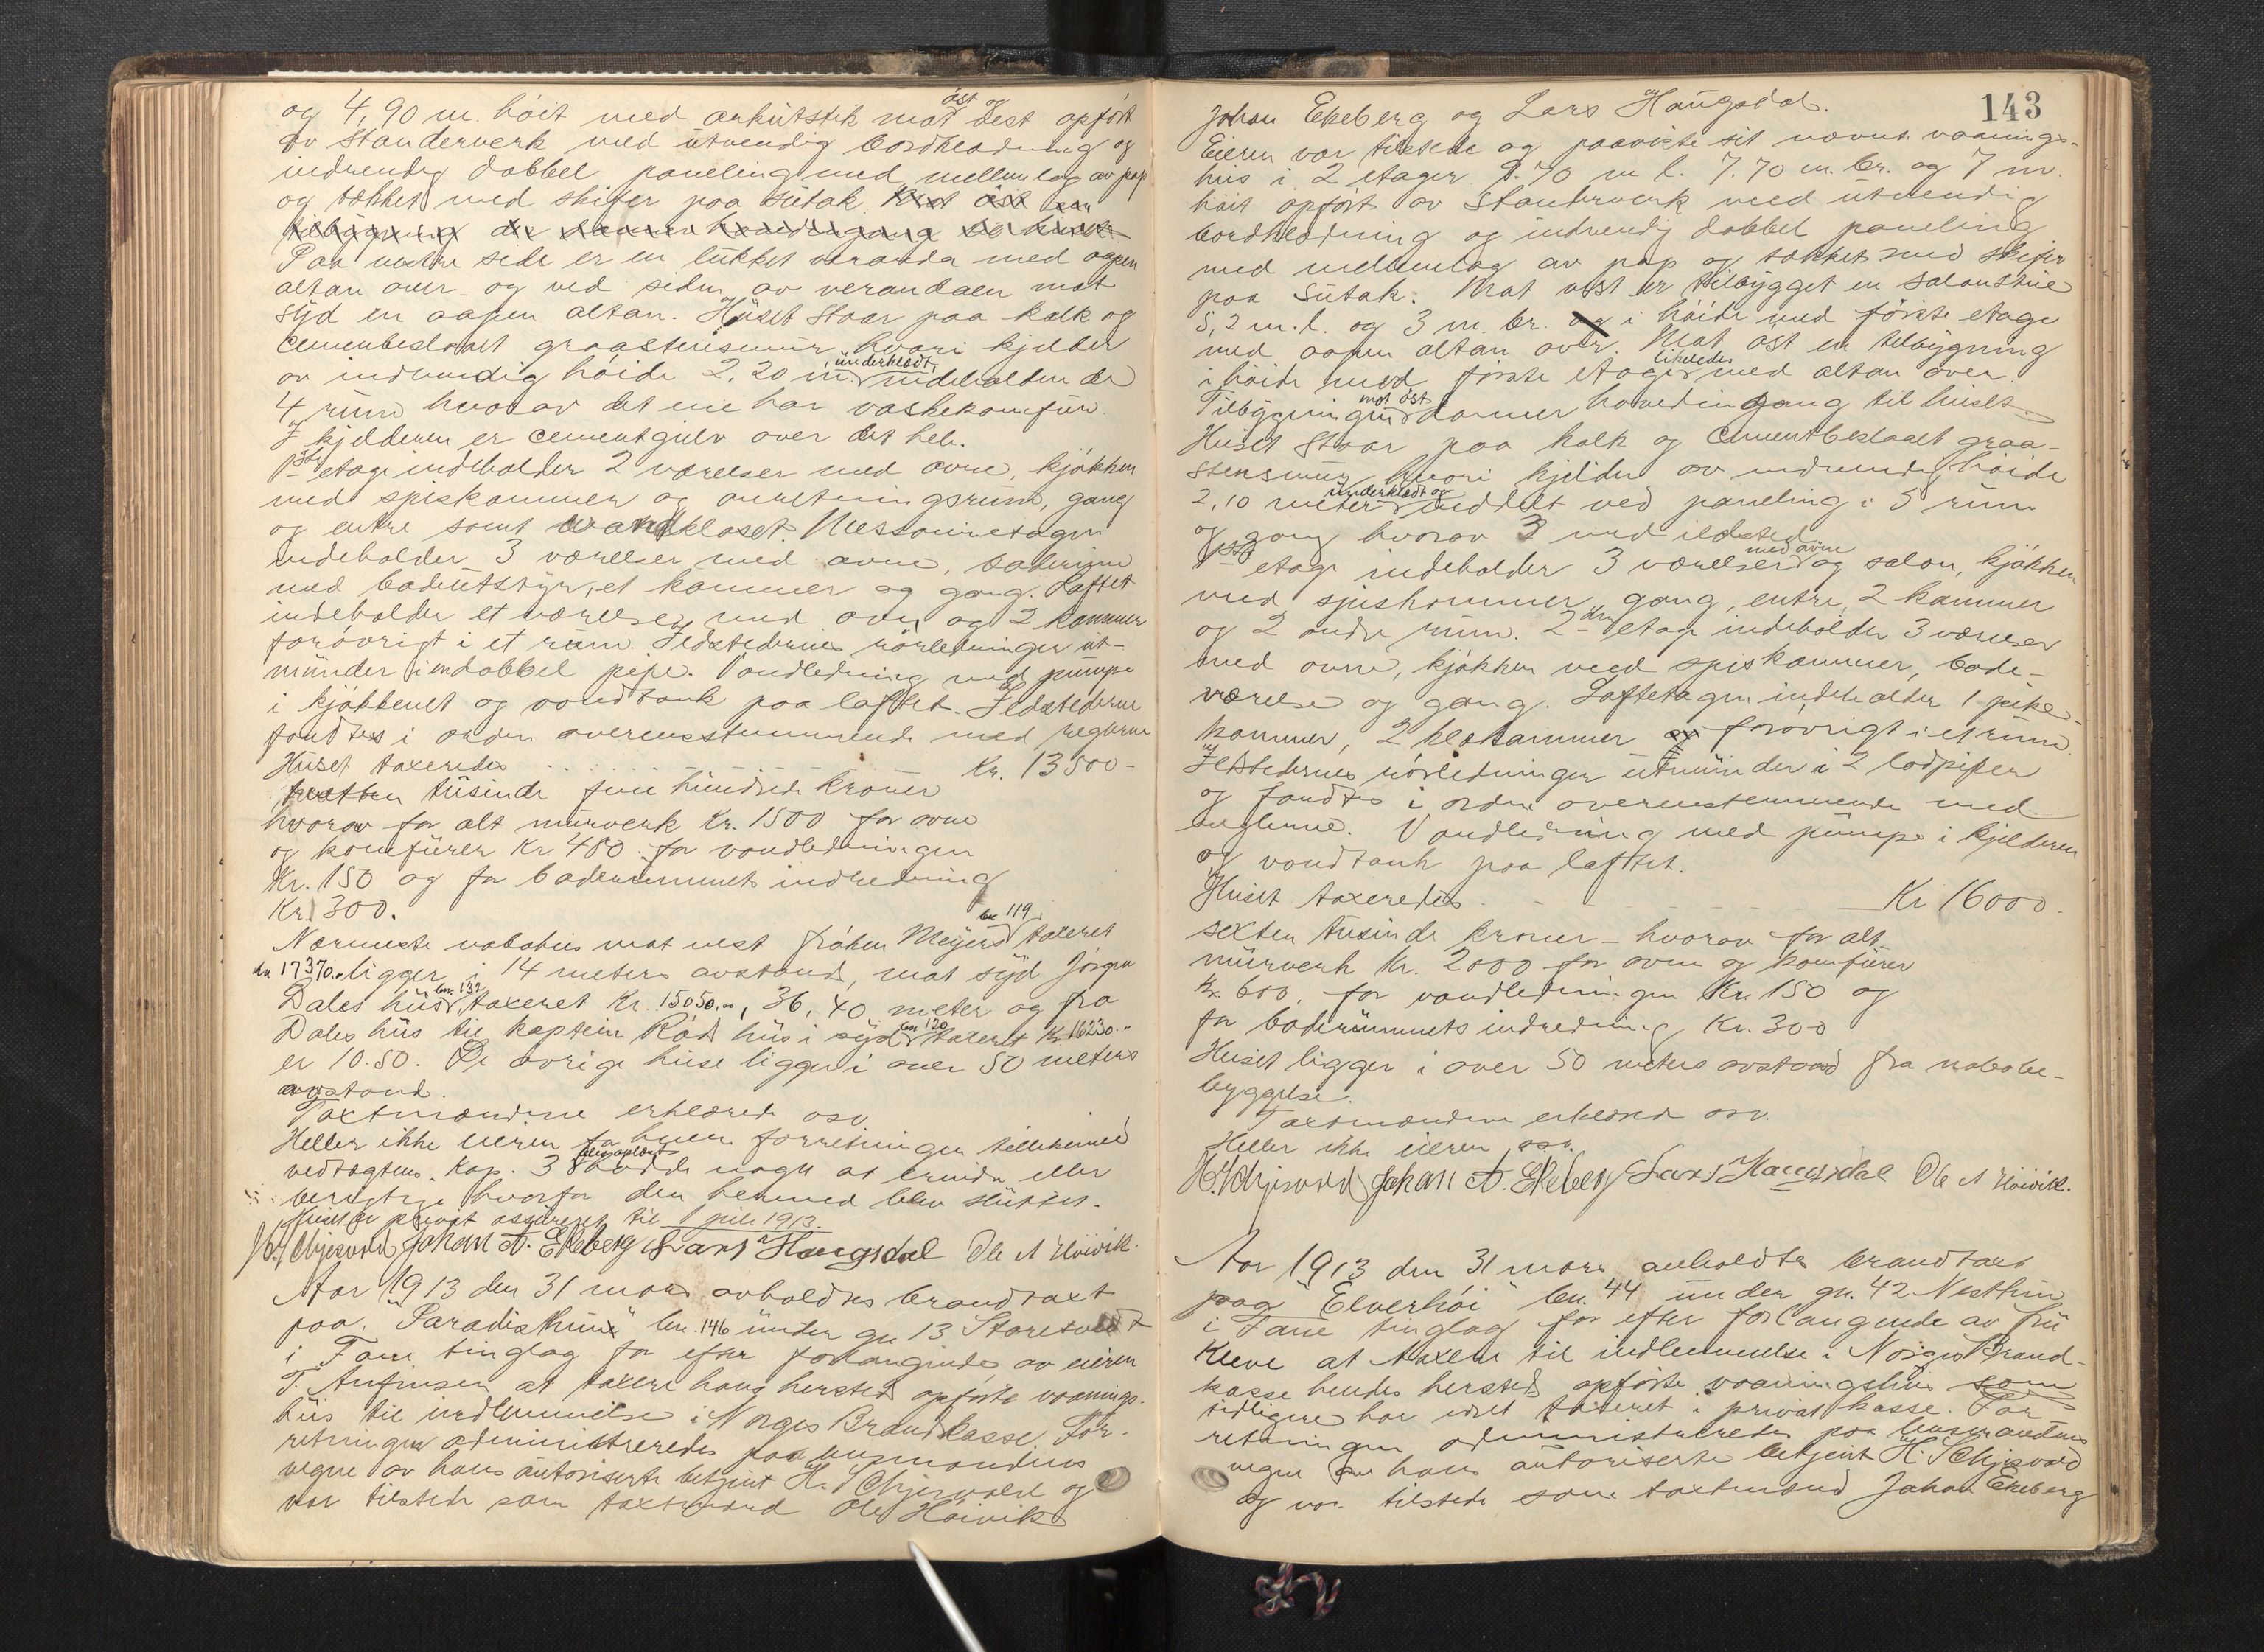 og 4,90 m. höit med arkutstik mot öst og vest opfört
av standerverk med utvendig bordklædning og
indvendig dobbel paneling med mellemlag av pap
og tækket med skifer paa sutak. Mot öst er
tilbygning der danner hovedingang til huset.
Paa vestre side er en lukket veranda med aapen
altan over og ved siden av verandaen mot
syd en aapen altan. Huset staar paa kalk og
cementbeslaaet graastensmur hvori kjelder
av indvendig höide 2,20 m. underklædt, indeholdende
4 rum hvorav det ene har vaskekomfur.
I kjelderen er cementgulv over det hele.
1ste etage indeholder 2 værelser med ovne, kjökken
med spiskammer og anretningsrum, gang
og entre samt vandkloset. Messaninetagen
indeholder 3 værelser med ovne, baderum
med badeutstyr, et kammer og gang. Loftet
indeholder et værelse med ovn og 2 kammer
forövrigt i et rum. Ildstedernes rörledninger ut-
munder i en dobbel pipe. Vandledning med pumpe
i kjökkenet og vandtank paa loftet. Ildstederne
fandtes i orden overensstemmende med reglerne
Huset taxeredes . . . Kr. 13500-
tretten tusinde fem hundrede kroner
hvorav for alt murverk Kr. 1500 for ovne
og komfurer Kr. 450 for vandledningen
Kr. 150 og for baderummets indredning
Kr. 300.
Nærmeste nabohus mot vest fröken Meyers bn 119 taxeret
kr. 17370.- ligger i 14 meters avstand, mot syd Jörgen
Dales hus bn. 132 taxeret Kr. 15050.-, 36,40 meter og fra
Dales hus til kaptein Röds hus i syd bn 120 taxeret Kr. 16230.-
er 10.50. De övrige huse ligger i over 50 meters
avstand.
Taxtmændene erklærede osv.
Heller ikke eieren for hvem forretningen tillikemed
vedtægtens Kap. 3 blev oplæst hadde noget at erindre eller
berigtige hvorfor den hermed blev sluttet.
Huset er privat assureret til 1 juli 1913.
H. Schjesvold Johan A. Ekeberg Lars Haugsdal Ole A Höivik.
Aar 1913 den 31 mars avholdtes brandtaxt
paa "Paradishum" bn. 146 under gn 13 Storetvedt
i Fane tinglag for efter forlangende av eieren
T. Anfinsen at taxere hans hersteds opförte vaanings-
hus til indlemmelse i Norges Brandkasse. For-
retningen administreredes paa lensmandens
vegne av hans autoriserte betjent H. Schjesvold og
var tilstede som taxtmænd Ole Höivik
143
Johan Ekeberg og Lars Haugsdal.
Eieren var tilstede og paaviste sit nævnte vaanings-
hus i 2 etager 9.70 m l. 7.70 m. br. og 7 m.
höit opfört av standerverk med utvendig
bordklædning og indvendig dobbel paneling
med mellemlag av pap og tækket med skifer
paa sutak. Mot vest er tilbygget en salonstue
5,2 m. l. og 3 m. br. og i höide med förste etage
med aapen altan over. Mot öst en tilbygning
i höide med förste etage likeledes med altan over.
Tilbygningen mot öst danner hovedingang til huset.
Huset staar paa kalk og cementbeslaaet graa-
stensmur hvori kjelder av indvendig höide
2,10 meter underklædt og inddelt ved paneling i 5 rum
og gang hvorav 3 med ildsted.
1ste etage indeholder 3 værelser med ovne og salon, kjökken
med spiskammer, gang, entre, 2 kammer
og 2 andre rum. 2den etage indeholder 3 værelser
med ovne, kjökken med spiskammer, bade-
værelse og gang. Loftetagen indeholder 1 pike-
kammer, 2 klækammer og forövrigt i et rum.
Ildstedernes rörledninger utmunder i 2 lodpiper
og fandtes i orden overenstemmende med
reglerne. Vandledning med pumpe i kjelderen
og vandtank paa loftet.
Huset taxeredes . . . Kr 16000.
sexten tusinde kroner - hvorav for alt
murverk Kr. 2000 for ovne og komfurer
Kr. 600, for vandledningen Kr. 150 og
for baderummets indredning Kr. 300
Huset ligger i over 50 meters avstand fra nabobe-
byggelse.
Taxtmændene erklæred osv.
Heller ikke eieren osv.
H. Schjesvold Johan A. Ekeberg Lars Haugsdal Ole A Höivik.
Aar 1913 den 31 mars avholdtes brandtaxt
paa "Elverhöi" bn. 44 under gn. 42 Nesttun
i Fane tinglag for efter forlangende av fru
Kleve at taxere til indlemmelse i Norges Brand-
kasse hendes hersteds opförte vaaningshus som
tidligere har været taxeret i privat kasse. For-
retningen administreredes paa lensmandens
vegne av hans autoriserte betjent H. Schjesvold
og var tilstede som taxtmænd Johan Ekeberg